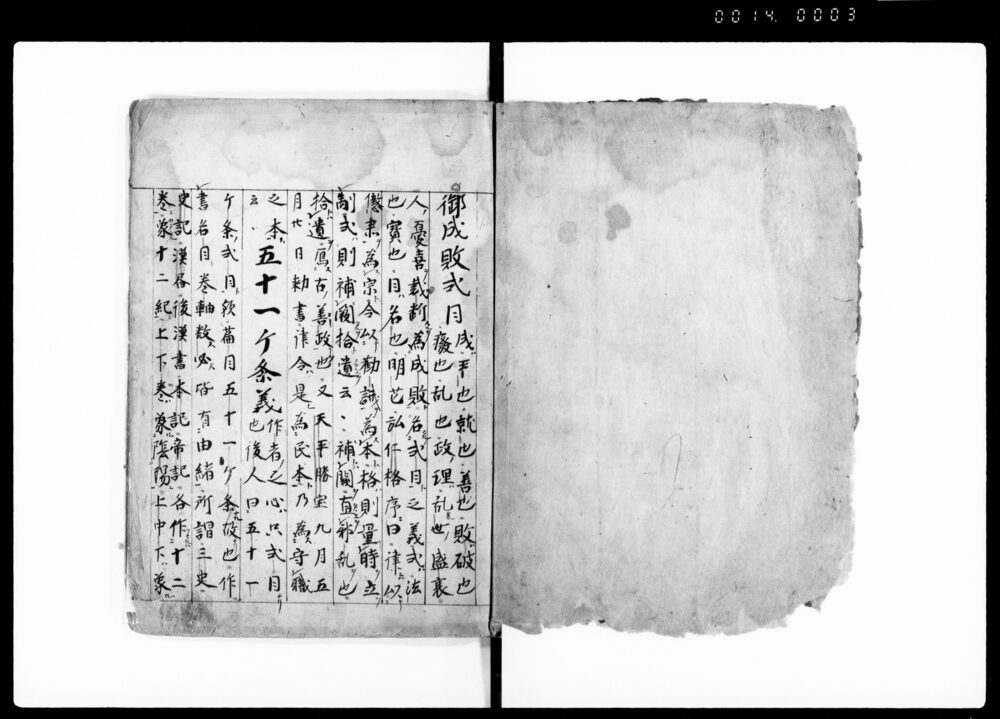 0014. 0003
御成敗式目 成平也就也善也敗破也
癈也乱也政理乱世盛衰
人憂喜裁断為成敗名式目之義式法
也寳也目名也明也弘仁格序曰律以
懲粛為宗令以勧誡為本格則量時立
制式則補闕拾遺云〻補闕直邪乱也
拾遺廣古善政也又天平勝宝九月五
月廿日勅書律令是為民本乃為守職
之本 五十一ケ条義 作者之心只式目
云〻 也後人曰五十一
ケ条式目欤篇目五十一ケ条故也作
書名目巻軸数必皆有由緒所謂三史
史記漢書後漢書本記帝記各作十二
巻象十二紀上下巻象陰陽上中下象